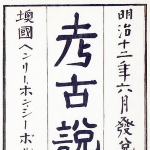 明治十二年六月發兌
考古說
墺國ヘンリー、ホン、シーボル